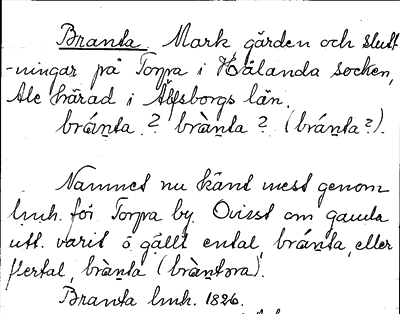 Branta Mark, gärden och slutt-
-ningar på Torpa i Hålanda socken,
Ale härad i Älfsborgs län.
brán̠ta? bràn̠ta? (brán̠ta?).
Namnet nu känt mest genom
lmh. för Torpa by. Ovisst om gamla
utt. varit o gällt ental, brán̠ta, eller
flertal, bràn̠ta (bràn̠tora).
Branta lmh. 1826.